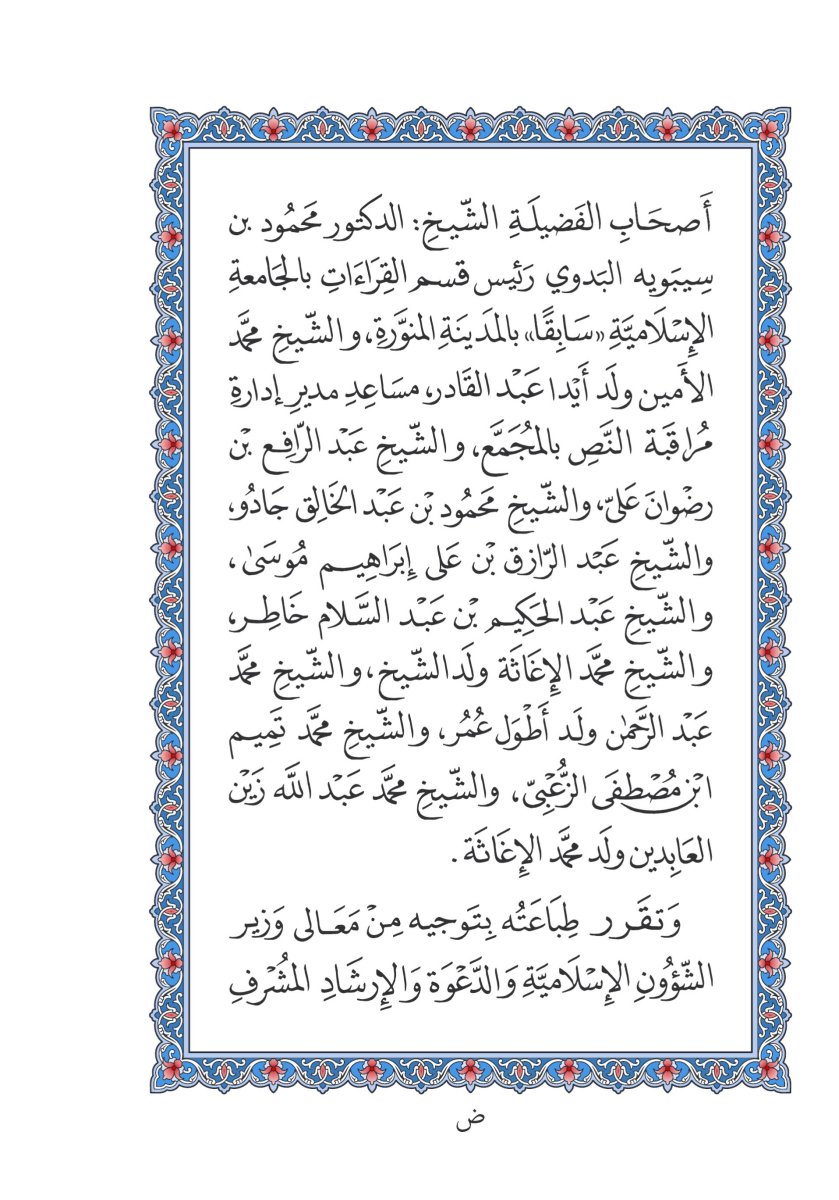 أَصحَابِ الفَضيلَةِ الشّيخِ: الدكتور محَمُود بن
سِيبَويه البَدوي رَئيس قسم القِرَاءَاتِ بالجَامعةِ
الإِسْلَاميَّةِ «سَابِقًا» بالمَدينَةِ المنوَّرةِ، والشّيخِ محمَّد
الأَمين ولَد أَيْدا عَبْد القَادر، مسَاعِدِ مديرِ إدارةِ
مُراقَبَة النَّصِ بالمجُمَّع، والشّيخِ عَبْد الرّافِع بْن
رضْوانَ عَليّ، والشّيخِ محَمُود بْن عَبْد الخَالِق جَادُو،
والشّيخِ عَبْد الرّازق بْن عَلى إِبرَاهِيم مُوسَىٰ،
والشّيخِ عَبْد الحَكِيم بْن عَبْد السَّلام خَاطِر،
والشّيخِ محمَّد الإِغَاثَة ولَد الشّيخ، والشّيخِ محمَّد
عَبْد الرَّحمٰن ولَد أَطْوَل عُمُر، والشّيخِ محمَّد تَمِيم
ابْن مُصْطفَى الزُّعْبِيّ، والشّيخِ محمَّد عَبْد اللَّه زَيْن
العَابِدين ولَد محمَّد الإِغَاثَة.
وَتقَرر طِبَاعَتُه بِتَوجيه مِنْ مَعَالى وَزير
الشّؤُونِ الإِسْلَاميَّةِ وَالدَّعْوَة وَالإِرشَادِ المشْرفِ
ض